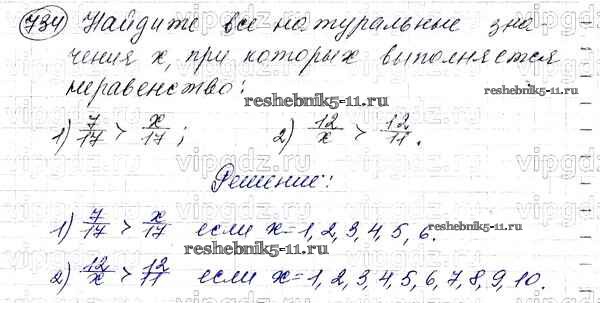 734 Найдите все натуральные зна
чения x, при которых выполняется
неравенство:
reshebnik5-11.ru
reshebnik5-11.ru
1) 7/17 > x/17; 2) 12/x > 12/11.
vipgdz.ru vipgdz.ru vipgdz.ru
Решение:
1) 7/17 > x/17 если x=1,2,3,4,5,6.
reshebnik5-11.ru
reshebnik5-11.ru
2) 12/x > 12/11 если x=1,2,3,4,5,6,7,8,9,10.